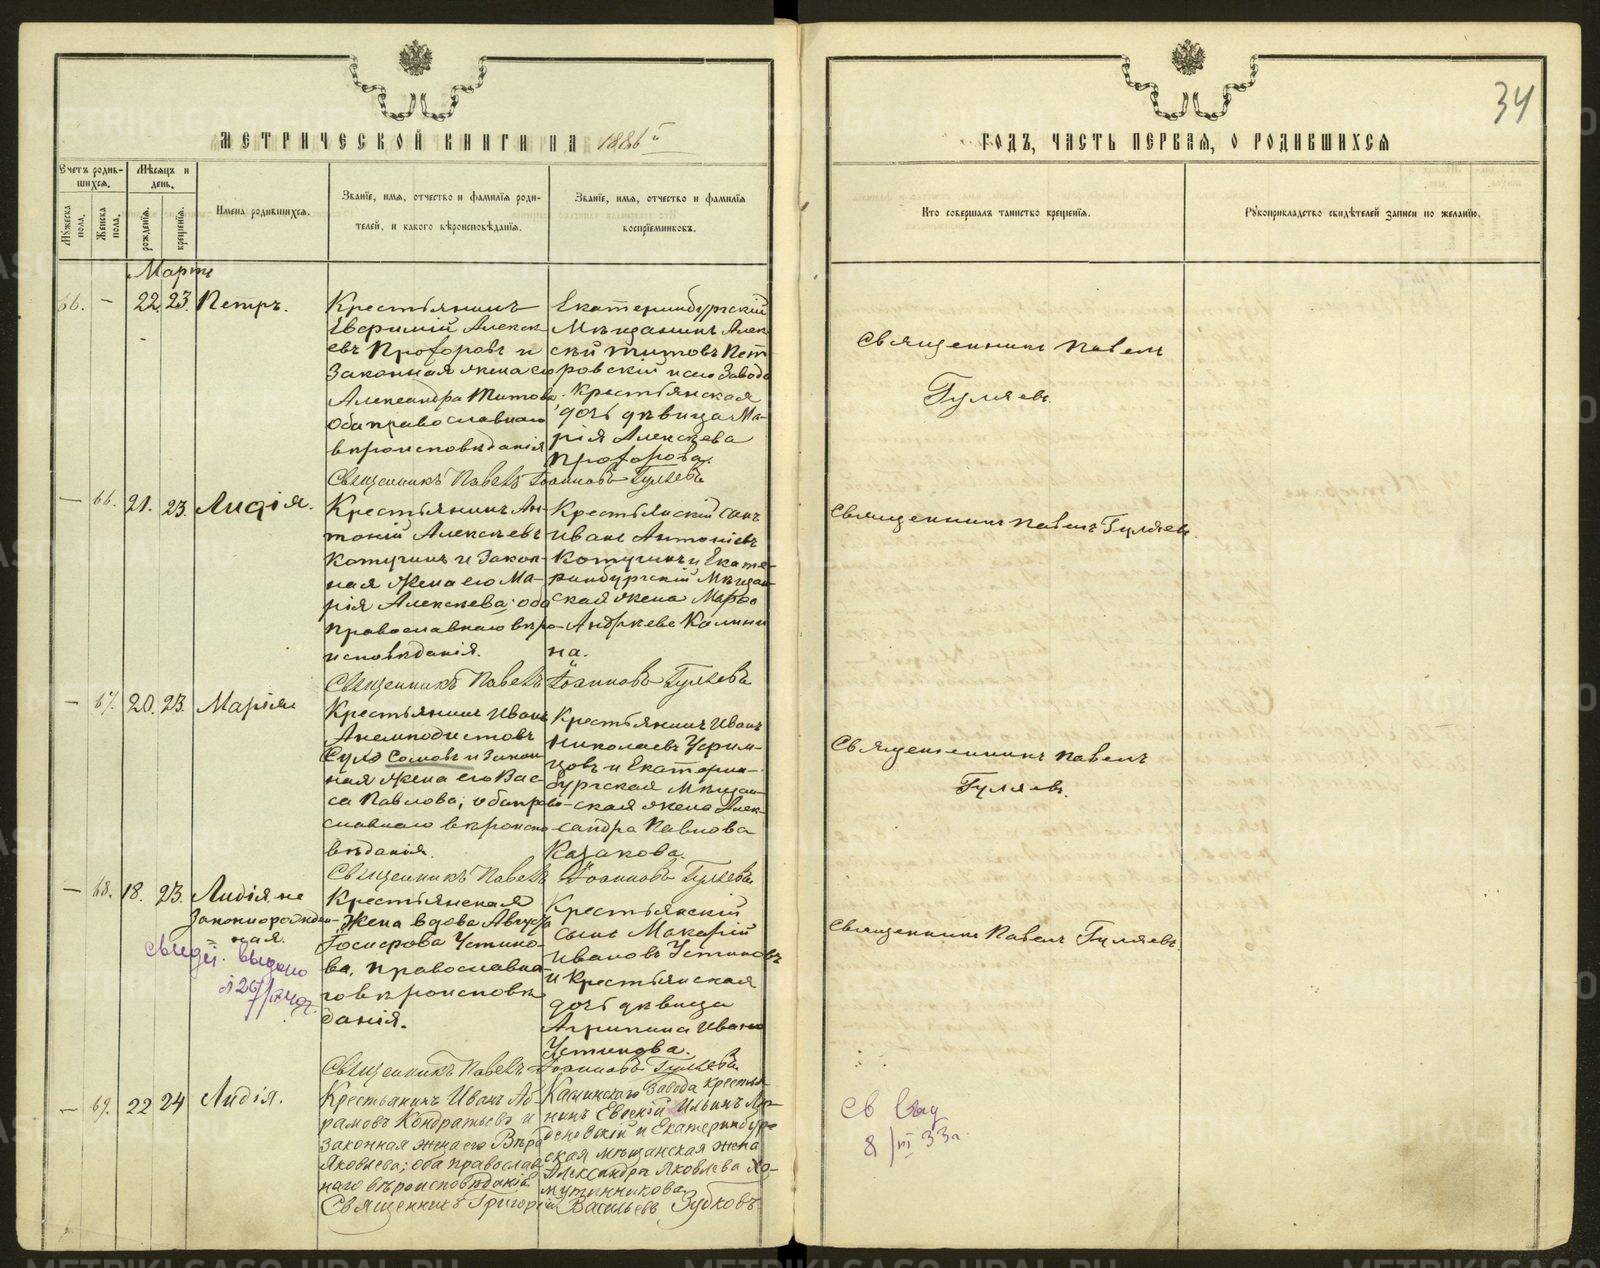 МЕТРИЧЕСКОЙ КНИГИ НА 1886й
ГОДЪ, ЧАСТЬ ПЕРВАЯ, О РОДИВШИХСЯ
34
Счетъ родив-
шихся.
Мѣсяцъ и
день.
Мужеска пола.
Женска пола.
рожденія.
крещенія.
Имена родившихся.
Званіе, имя, отчество и фамилія роди-
телей, и какого вѣроисповѣданія.
Званіе, имя, отчество и фамилія
воспріемниковъ.
Кто совершалъ таинство крещенія.
Рукоприкладство свидѣтелей записи по желанію.
Мартъ
66. — 22. 23. Петръ.
Крестьянинъ
Евфимій Алексѣ-
евъ Прохоровъ и
законная жена его
Александра Титова
оба православнаго
вѣроисповѣданія
Екатеринбургскій
Мѣщанинъ Алек
сѣй Титовъ Пет
ровскій и сего Завода
крестьянская
дочь дѣвица Ма-
рія Алексѣева
Прохорова.
Священникъ Павелъ
Гуляевъ.
Священникъ Павелъ Іоанновъ Гуляевъ
— 66. 21. 23. Лидія.
Крестьянинъ Ан-
тоній Алексѣевъ
Котугинъ и закон-
ная жена его Ма-
рія Алексѣева; оба
православнаго вѣро-
исповѣданія.
Крестьянскій сынъ
Иванъ Антоніевъ
Котугинъ и Екате-
ринбургскій Мѣщан-
ская жена Марѳа
Андреева Калини
на.
Священникъ Павелъ Гуляевъ.
Священникъ Павелъ Іоанновъ Гуляевъ
— 67. 20. 23. Марія
Крестьянинъ Иванъ
Анемподистовъ
Сомовъ и закон-
ная жена его Вас-
са Павлова; оба право-
славнаго вѣроиспо-
вѣданія.
Крестьянинъ Иванъ
Николаевъ
и Екатерин-
бургская Мѣщан-
ская жена Алек-
сандра Павлова
Казакова.
Священникъ Павелъ
Гуляевъ.
Священникъ Павелъ Іоанновъ Гуляевъ
— 68. 18. 23. Лидія не
законнорожден-
ная.
выдано
Крестьянская
жена вдова Августа
Устино-
ва, православна-
го вѣроисповѣ
данія.
Крестьянскій
сынъ Макарій
Ивановъ Устиновъ
и крестьянская
дочь дѣвица
Агрипина Ивано
Устинова.
Священникъ Павелъ Гуляевъ.
Священникъ Павелъ Іоанновъ Гуляевъ
— 69. 22 24 Лидія.
Крестьянинъ Иванъ Аб-
рамовъ Кондратьевъ и
законная жена его Вѣра
Яковлева; оба православ
наго вѣроисповѣданія
Каслинскаго завода крестья-
нинъ Евгеній Ильинъ
и Екатеринбург
ская мѣщанская жена
Александра Яковлева Хо-
мутинникова.
Св выд
8/III 33г.
Священникъ Григорій Васильевъ Зубковъ